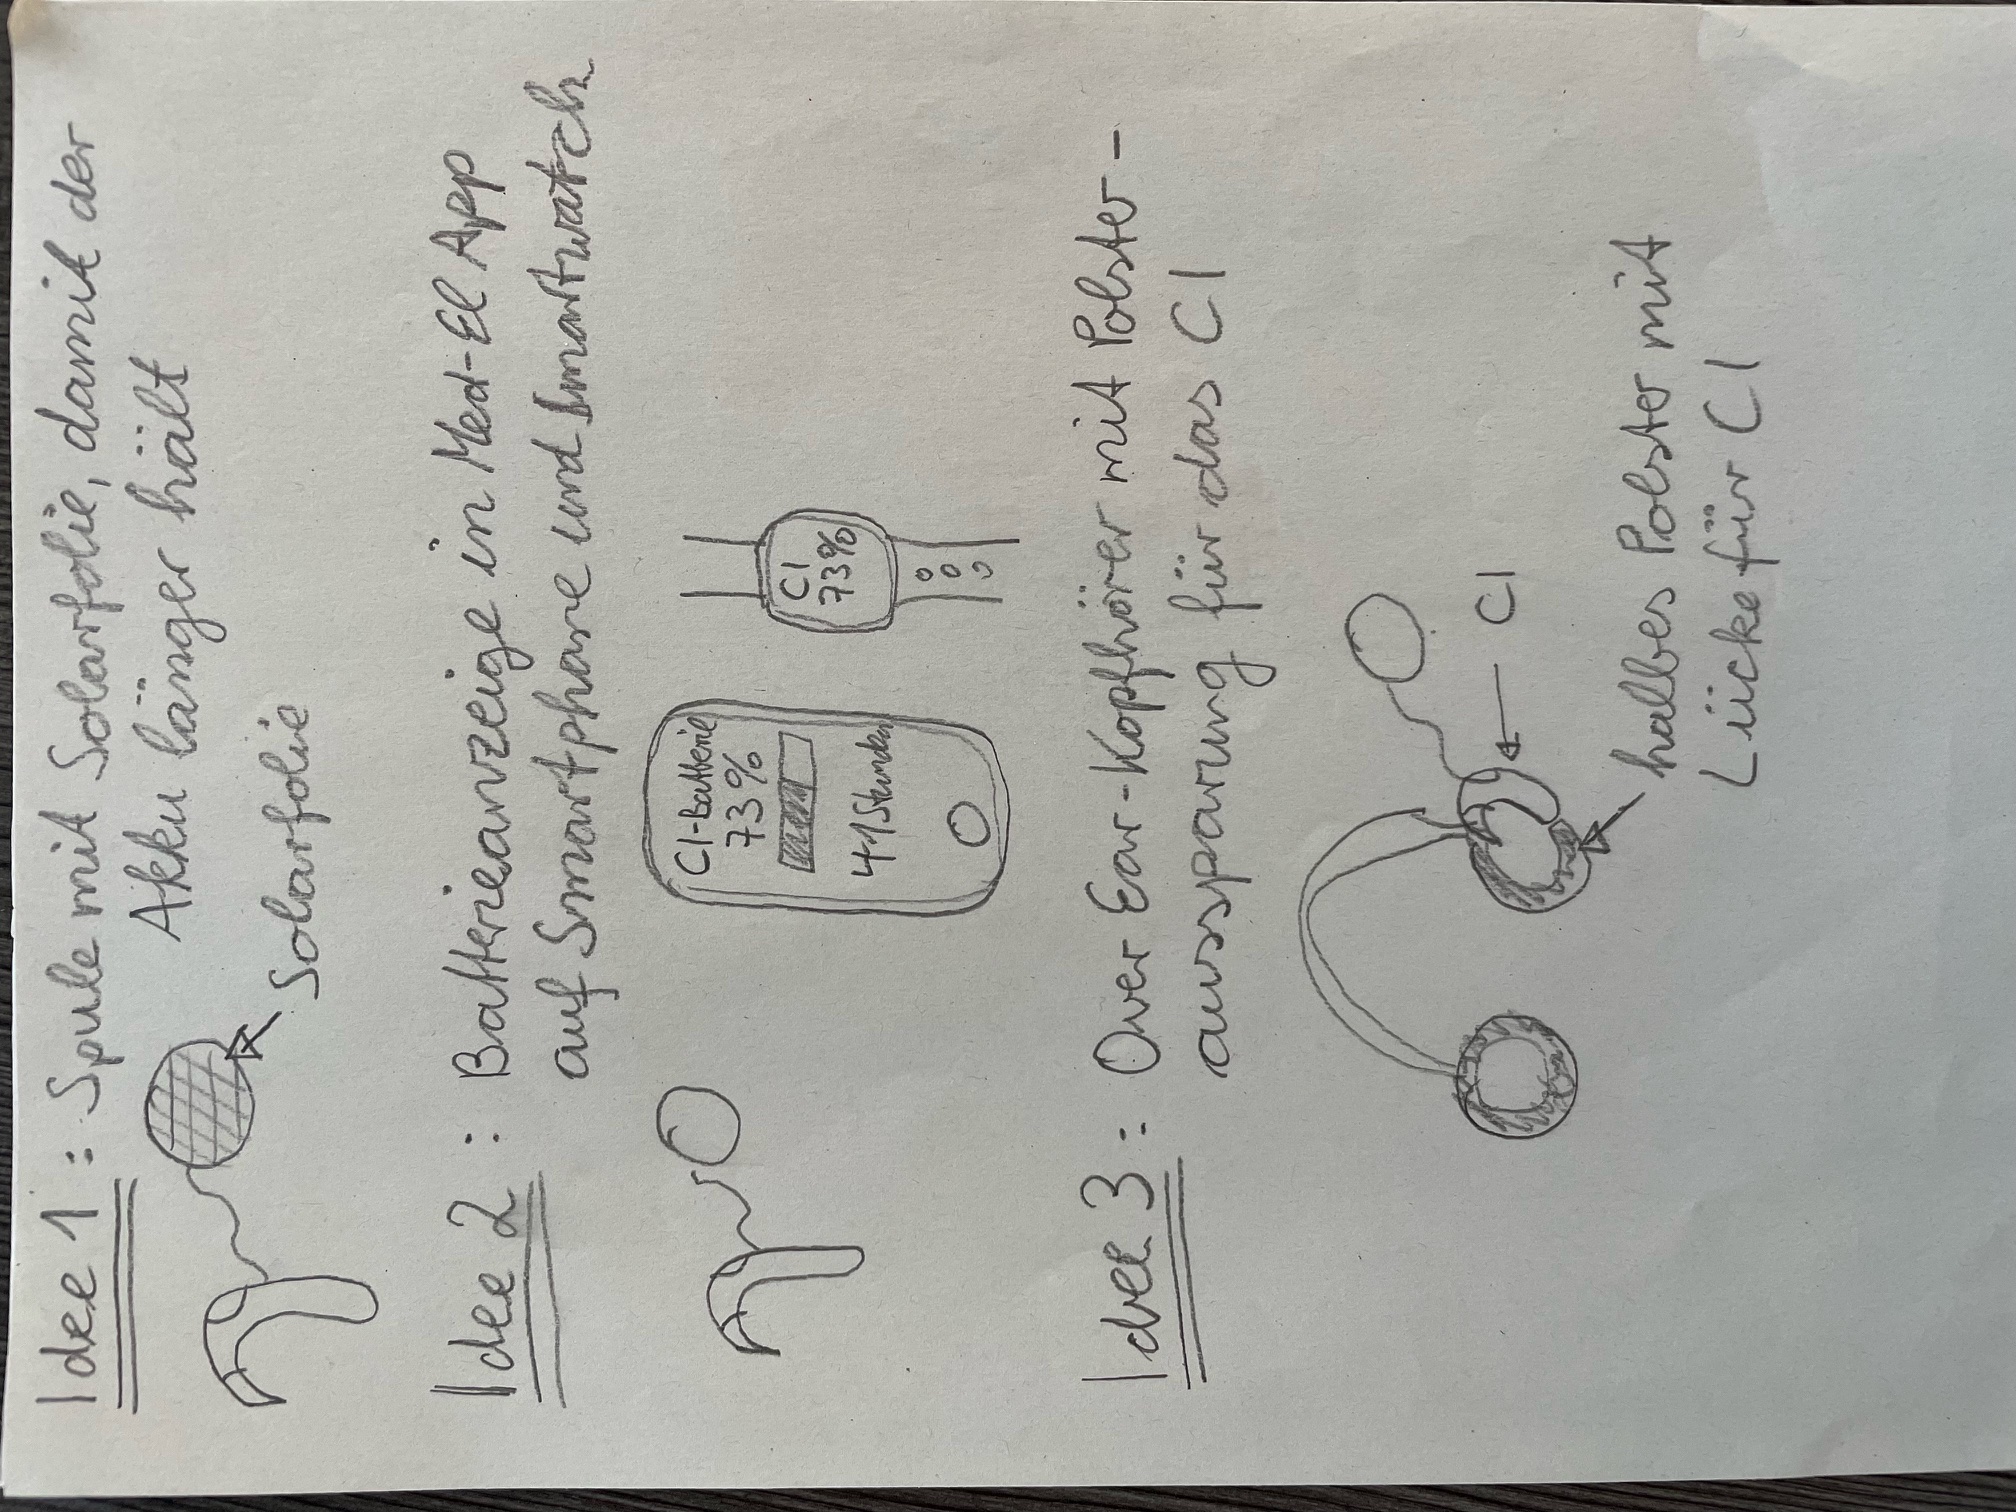 Idee 1: Spule mit Solarfolie, damit der
Akku länger hält
Solarfolie
Idee 2: Batterieanzeige in Med-El App
auf Smartphone und Smartwatch
CI-Batterie
73%
41 Stunden
CI
73%
Idee 3: Over Ear-Kopfhörer mit Polster-
aussparung für das CI
CI
halbes Polster mit
Lücke für CI